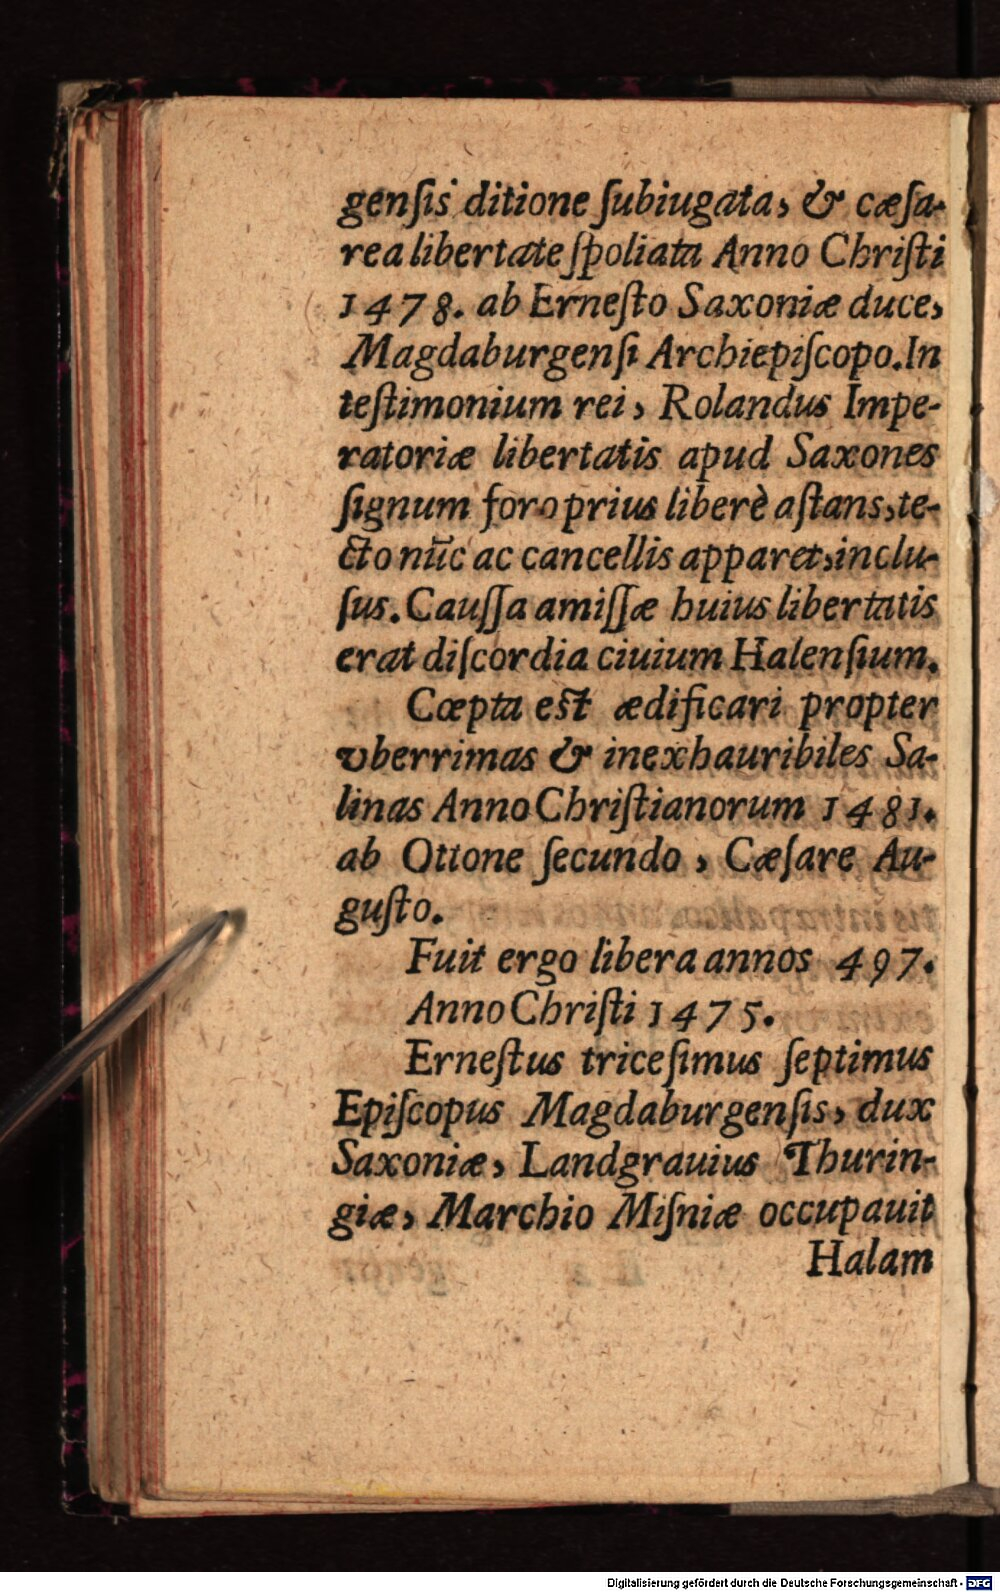 genſis ditione ſubiugata, & cæſa-
rea libertate ſpoliata Anno Chriſti
1478. ab Erneſto Saxoniæ duce,
Magdaburgenſi Archiepiſcopo. In
teſtimonium rei, Rolandus Impe-
ratoriæ libertatis apud Saxones
ſignum foro prius liberè aſtans, te-
cto nūc ac cancellis apparet, inclu-
ſus. Cauſſa amiſſæ huius libertatis
erat diſcordia ciuium Halenſium.
Cœpta eſt ædificari propter
vberrimas & inexhauribiles Sa-
linas Anno Chriſtianorum 1481.
ab Ottone ſecundo, Cæſare Au-
guſto.
Fuit ergo libera annos 497.
Anno Chriſti 1475.
Erneſtus triceſimus ſeptimus
Epiſcopus Magdaburgenſis, dux
Saxoniæ, Landgrauius Thurin-
giæ, Marchio Miſniæ occupauit
Halam
Digitalisierung gefördert durch die Deutsche Forschungsgemeinschaft - DFG